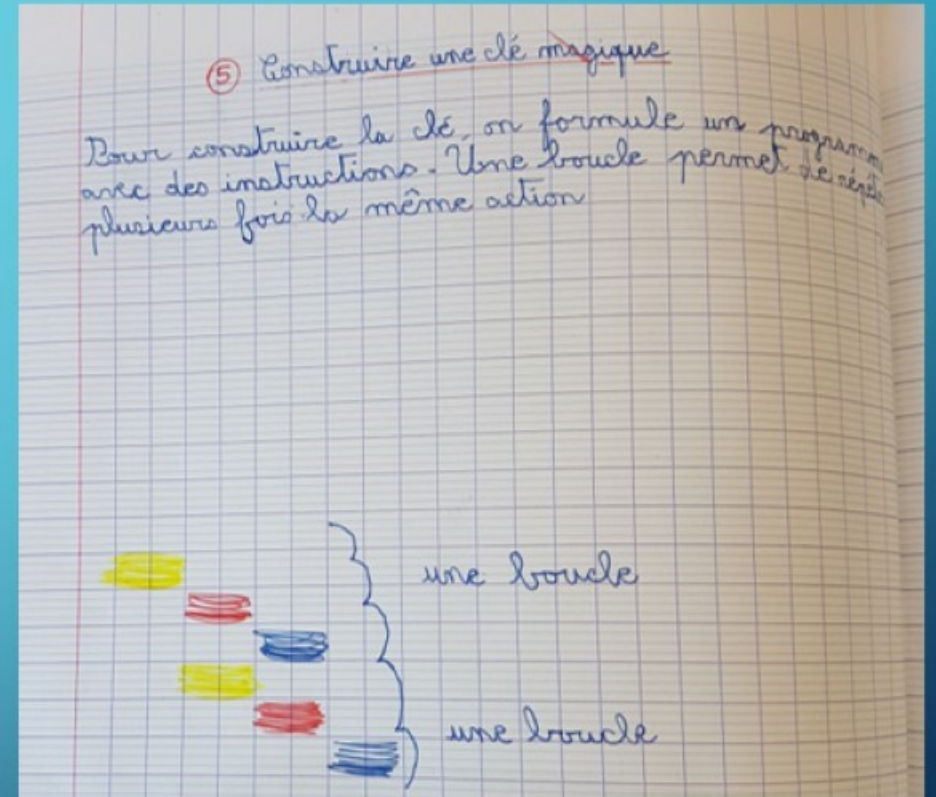 ⑤ Construire une clé magique
Pour construire la clé, on formule un programm
avec des instructions. Une boucle permet de répét
plusieurs fois la même action
une boucle
une boucle